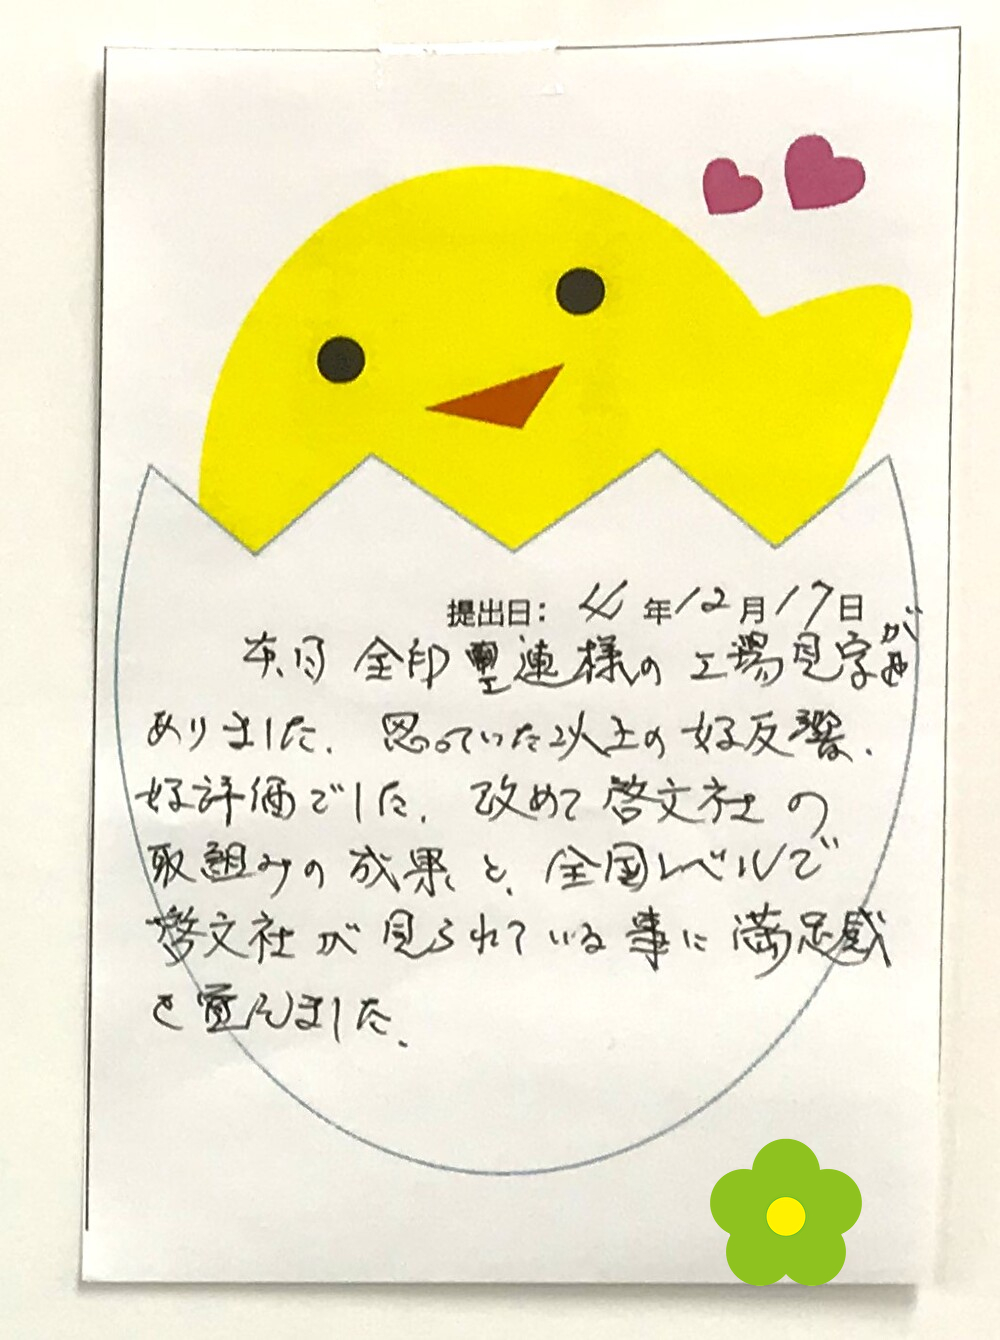 提出日: 年12月17日
本月 全印工連様の工場見学が
ありました. 思っていた以上の好反響、
好評価でした. 改めて啓文社の
取組みの成果と、全国レベルで
啓文社が見られている事に満足感
を覚えました.